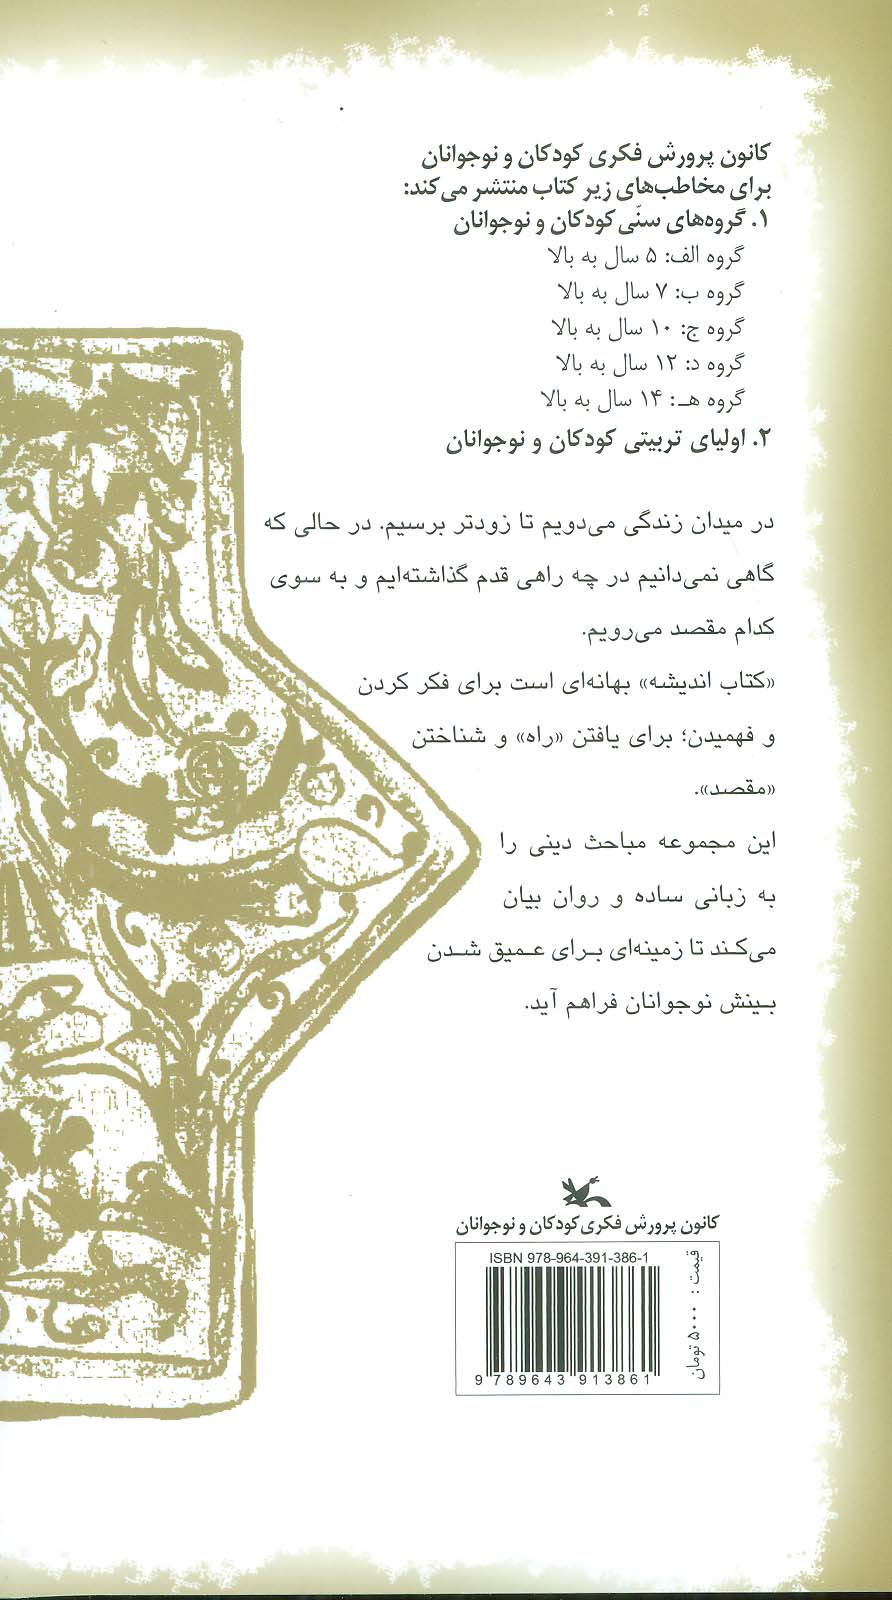 کانون پرورش فکری کودکان و نوجوانان
برای مخاطب‌های زیر کتاب منتشر می‌کند:
۱. گروه‌های سنّی کودکان و نوجوانان
گروه الف: ۵ سال به بالا
گروه ب: ۷ سال به بالا
گروه ج: ۱۰ سال به بالا
گروه د: ۱۲ سال به بالا
گروه هـ: ۱۴ سال به بالا
۲. اولیای تربیتی کودکان و نوجوانان
در میدان زندگی می‌دویم تا زودتر برسیم. در حالی که
گاهی نمی‌دانیم در چه راهی قدم گذاشته‌ایم و به سوی
کدام مقصد می‌رویم.
«کتاب اندیشه» بهانه‌ای است برای فکر کردن
و فهمیدن؛ برای یافتن «راه» و شناختن
«مقصد».
این مجموعه مباحث دینی را
به زبانی ساده و روان بیان
می‌کند تا زمینه‌ای بـرای عـمیق شـدن
بـینش نوجوانان فراهم آید.
کانون پرورش فکری کودکان و نوجوانان
ISBN 978-964-391-386-1
9 789643 913861
قیمت : ۵۰۰۰ تومان